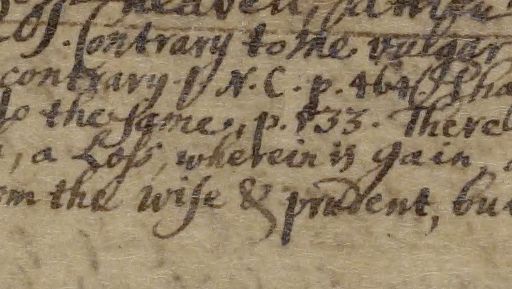 heaven,
Contrary to the vulgar
contrary. N. C. p.
to the same, p. 133. There
, a Loss, wherein is gain,
om the wise & prudent, but